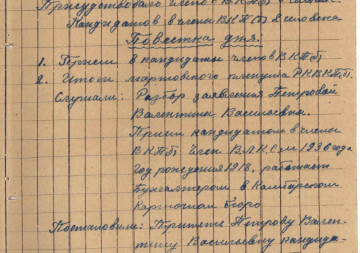 Присудствовало членов ВКПб
Кандидатов в члены ВКПб 2 человека
Повестка дня.
1. Прием в кандидаты членов ВКПб
2. Итоги мартовского пленума РК ВКПб.
Слушали: Разбор заявления Петровой
Валентины Васильевны.
Прием кандидатом в члены
ВКПб Член ВЛКСМ 1936 года
год рождения 1918, работает
бухгалтером в
карточном бюро
Постановили: Принять Петрову Вален-
тину Васильевну кандида-